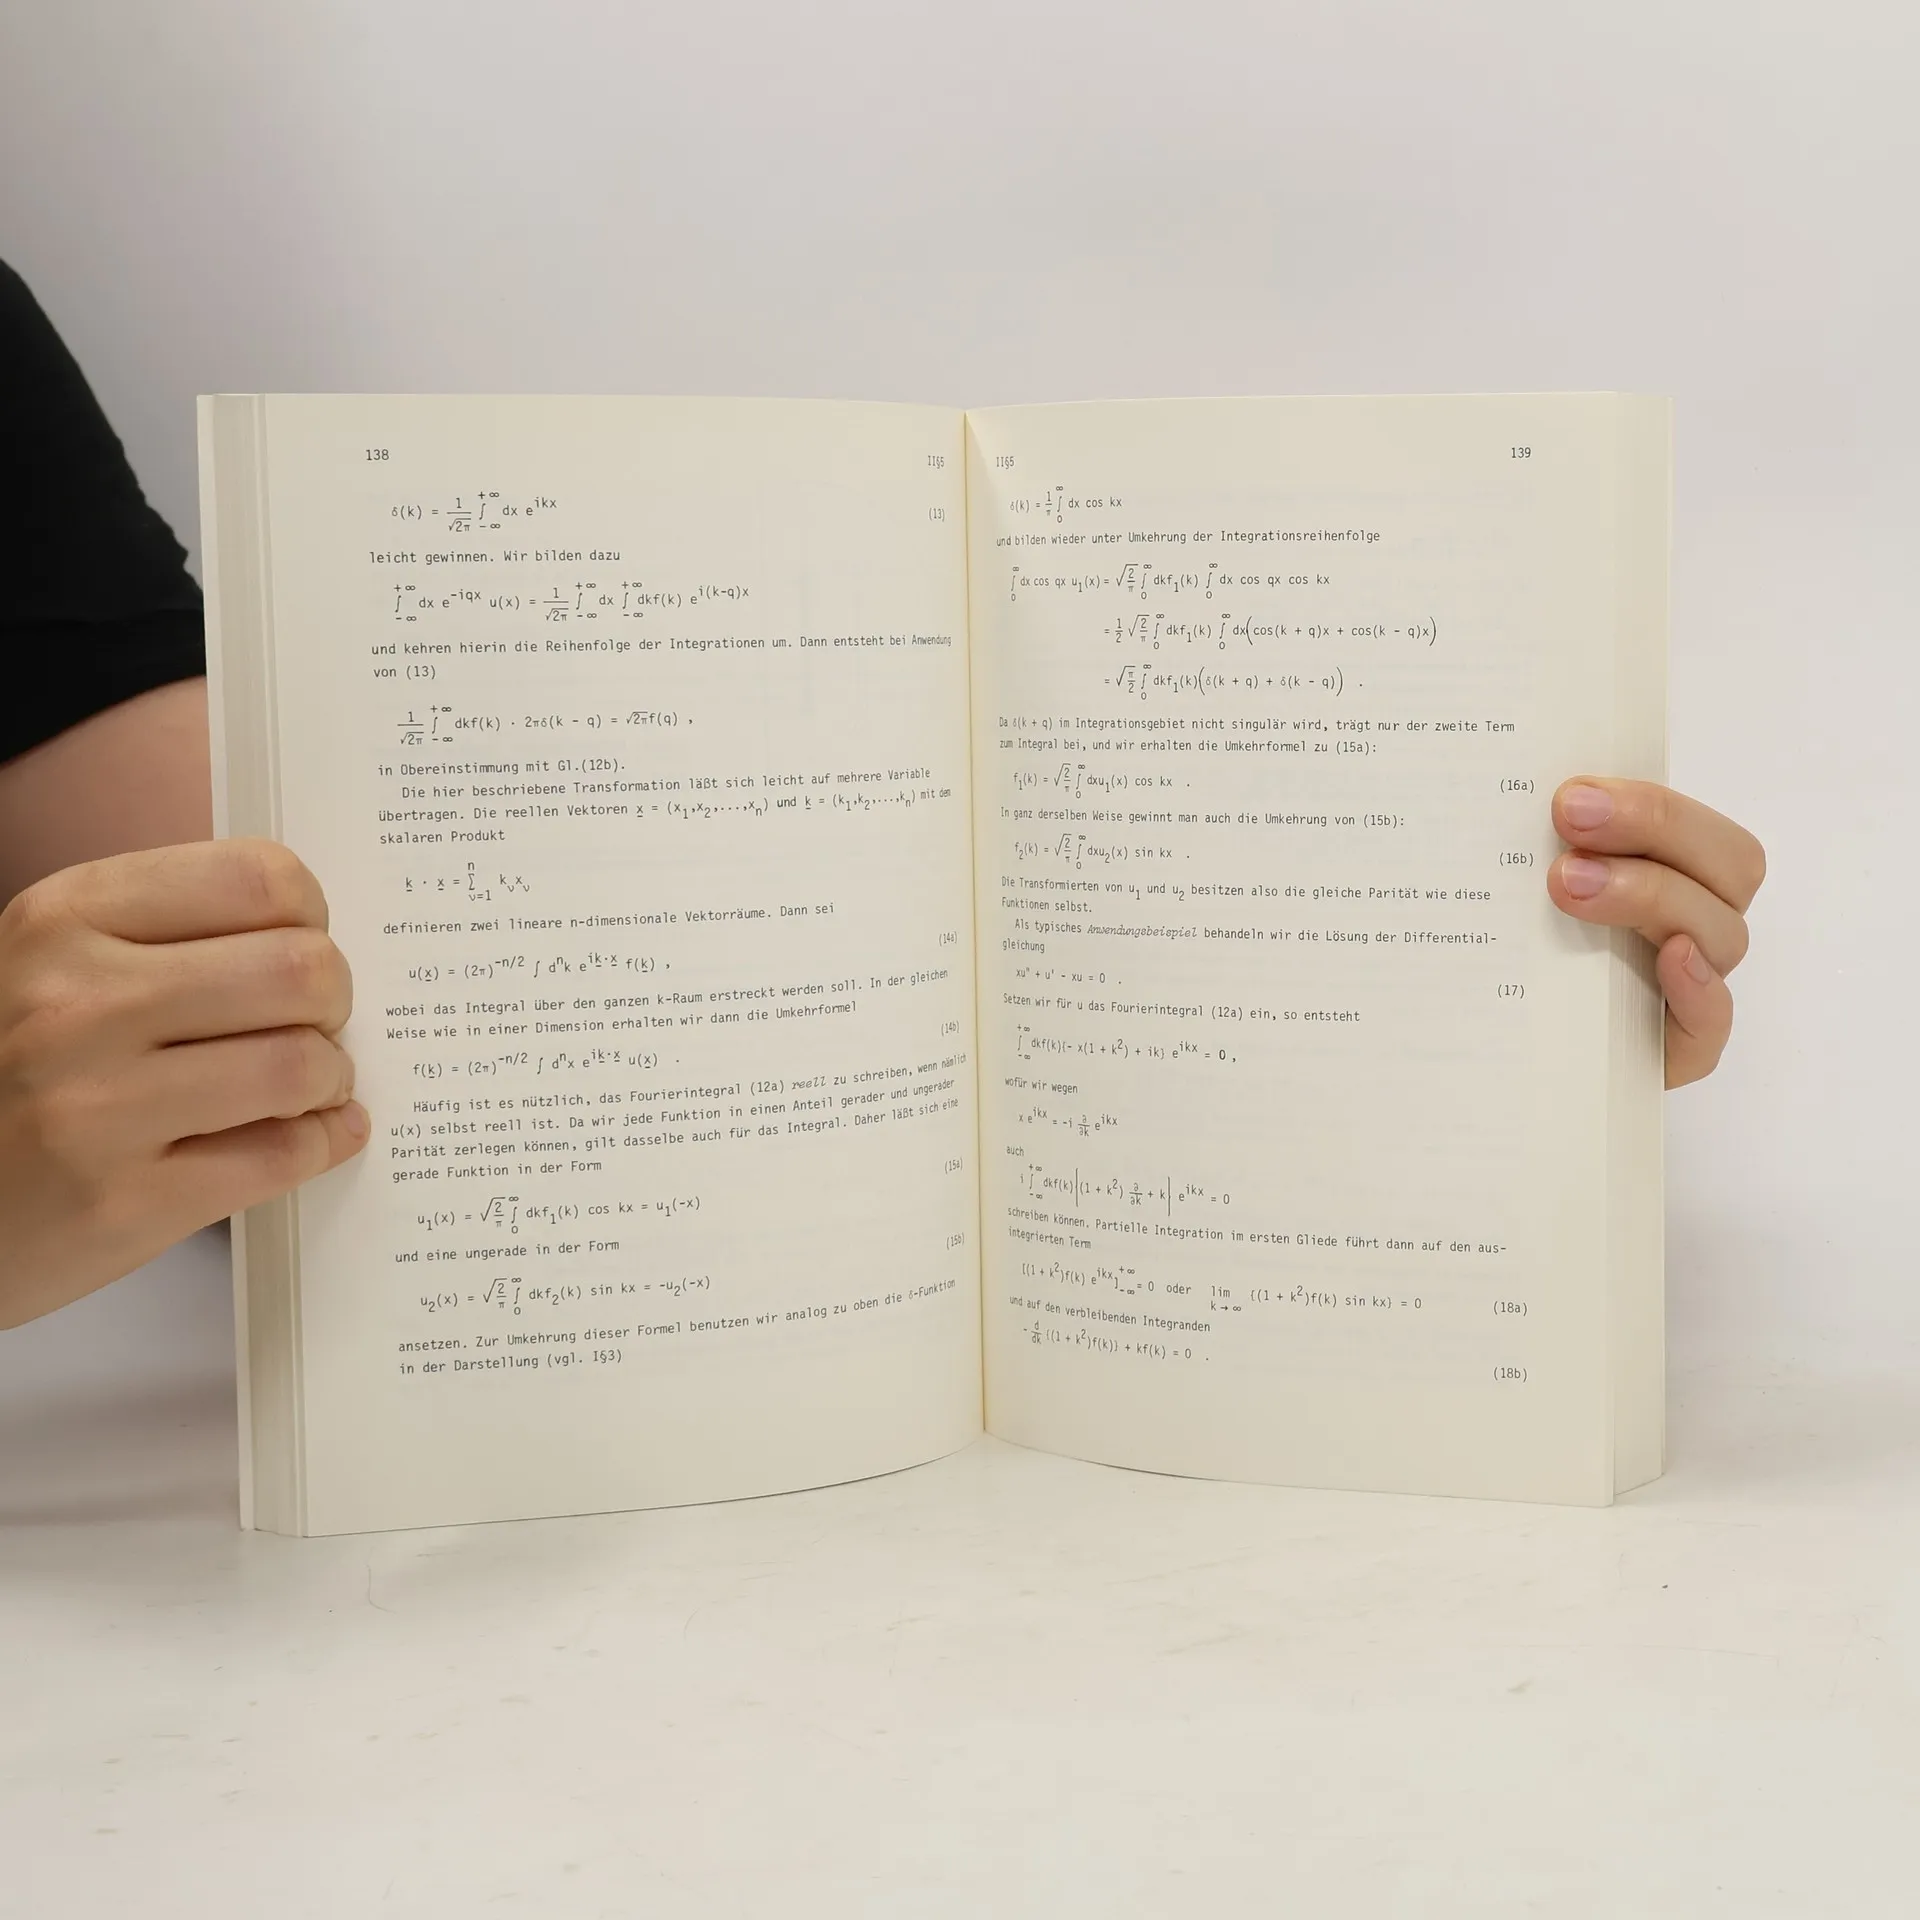 138
II§5
δ(k) = 1/√2π ∫_{-∞}^{+∞} dx e^{ikx} (13)
leicht gewinnen. Wir bilden dazu
∫_{-∞}^{+∞} dx e^{-iqx} u(x) = 1/√2π ∫_{-∞}^{+∞} dx ∫_{-∞}^{+∞} dkf(k) e^{i(k-q)x}
und kehren hierin die Reihenfolge der Integrationen um. Dann entsteht bei Anwendung
von (13)
1/√2π ∫_{-∞}^{+∞} dkf(k) · 2πδ(k - q) = √2πf(q) ,
in Obereinstimmung mit Gl.(12b).
Die hier beschriebene Transformation läßt sich leicht auf mehrere Variable
übertragen. Die reellen Vektoren x = (x₁,x₂,...,xₙ) und k = (k₁,k₂,...,kₙ) mit dem
skalaren Produkt
k · x = Σ_{ν=1}^{n} k_ν x_ν
definieren zwei lineare n-dimensionale Vektorräume. Dann sei
u(x) = (2π)^{-n/2} ∫ dⁿk e^{ik·x} f(k) , (14a)
wobei das Integral über den ganzen k-Raum erstreckt werden soll. In der gleichen
Weise wie in einer Dimension erhalten wir dann die Umkehrformel
f(k) = (2π)^{-n/2} ∫ dⁿx e^{ik·x} u(x) . (14b)
Häufig ist es nützlich, das Fourierintegral (12a) reell zu schreiben, wenn nämlich
u(x) selbst reell ist. Da wir jede Funktion in einen Anteil gerader und ungerader
Parität zerlegen können, gilt dasselbe auch für das Integral. Daher läßt sich eine
gerade Funktion in der Form
u₁(x) = √(2/π) ∫_{0}^{∞} dkf₁(k) cos kx = u₁(-x) (15a)
und eine ungerade in der Form
u₂(x) = √(2/π) ∫_{0}^{∞} dkf₂(k) sin kx = -u₂(-x) (15b)
ansetzen. Zur Umkehrung dieser Formel benutzen wir analog zu oben die δ-Funktion
in der Darstellung (vgl. I§3)
II§5
139
δ(k) = 1/π ∫_{0}^{∞} dx cos kx
und bilden wieder unter Umkehrung der Integrationsreihenfolge
∫_{0}^{∞} dx cos qx u₁(x) = √(2/π) ∫_{0}^{∞} dkf₁(k) ∫_{0}^{∞} dx cos qx cos kx
= 1/2 √(2/π) ∫_{0}^{∞} dkf₁(k) ∫_{0}^{∞} dx(cos(k + q)x + cos(k - q)x)
= √(π/2) ∫_{0}^{∞} dkf₁(k)(δ(k + q) + δ(k - q)) .
Da δ(k + q) im Integrationsgebiet nicht singulär wird, trägt nur der zweite Term
zum Integral bei, und wir erhalten die Umkehrformel zu (15a):
f₁(k) = √(2/π) ∫_{0}^{∞} dxu₁(x) cos kx . (16a)
In ganz derselben Weise gewinnt man auch die Umkehrung von (15b):
f₂(k) = √(2/π) ∫_{0}^{∞} dxu₂(x) sin kx . (16b)
Die Transformierten von u₁ und u₂ besitzen also die gleiche Parität wie diese
Funktionen selbst.
Als typisches Anwendungsbeispiel behandeln wir die Lösung der Differential-
gleichung
xu" + u' - xu = 0 . (17)
Setzen wir für u das Fourierintegral (12a) ein, so entsteht
∫_{-∞}^{+∞} dkf(k){- x(1 + k²) + ik} e^{ikx} = 0 ,
wofür wir wegen
x e^{ikx} = -i ∂/∂k e^{ikx}
auch
i ∫_{-∞}^{+∞} dkf(k){(1 + k²) ∂/∂k + k} e^{ikx} = 0
schreiben können. Partielle Integration im ersten Gliede führt dann auf den aus-
integrierten Term
[(1 + k²)f(k) e^{ikx}]_{-∞}^{+∞} = 0 oder lim_{k→∞} {(1 + k²)f(k) sin kx} = 0 (18a)
und auf den verbleibenden Integranden
- d/dk {(1 + k²)f(k)} + kf(k) = 0 . (18b)